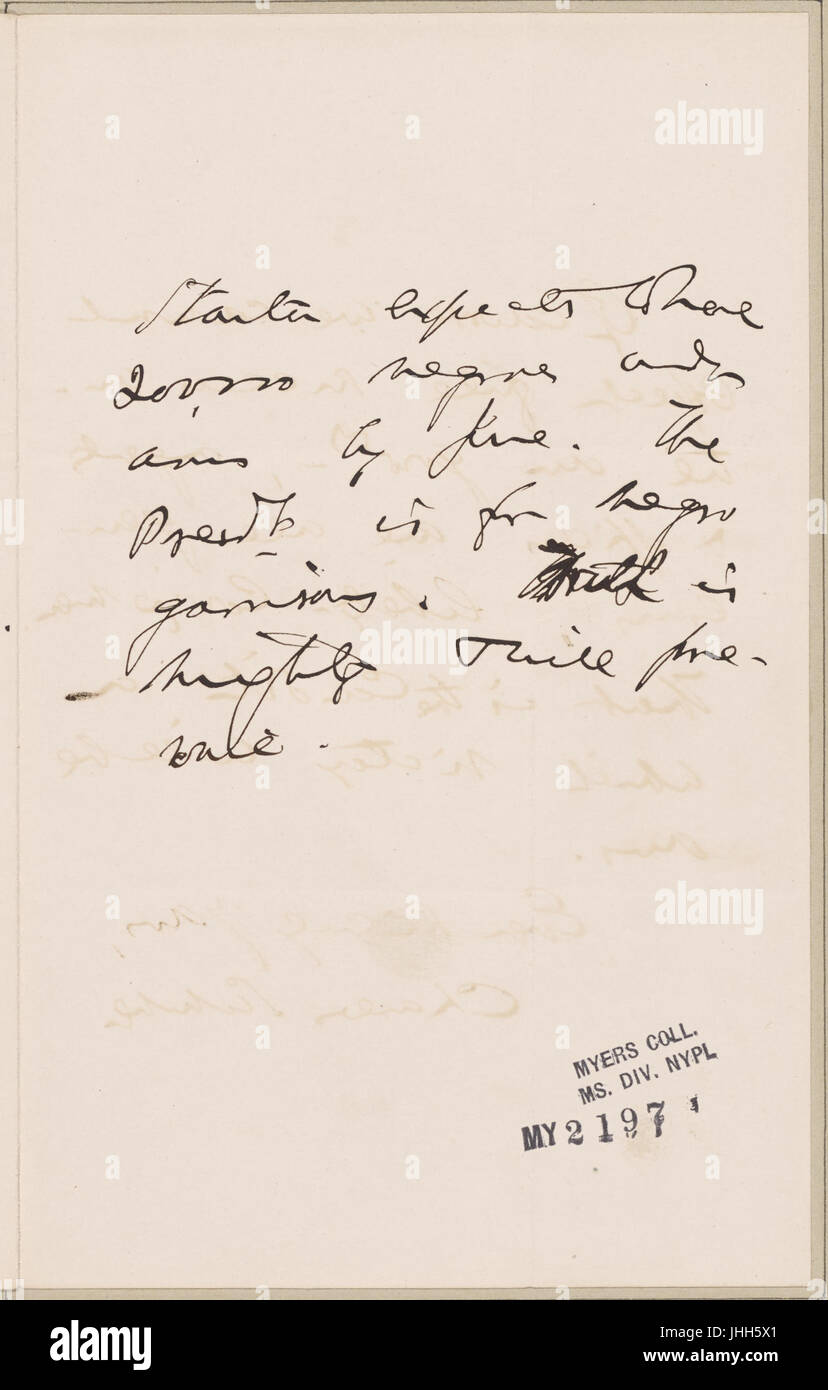 Stanton expects to have
200,000 negroes under
arms by June. The
Presdt. is for negro
garrisons. Truth is
mighty & will pre-
vail.
MYERS COLL.
MS. DIV. NYPL
MY 2197
alamy
a
alamy stock photo
JHH5X1
www.alamy.com